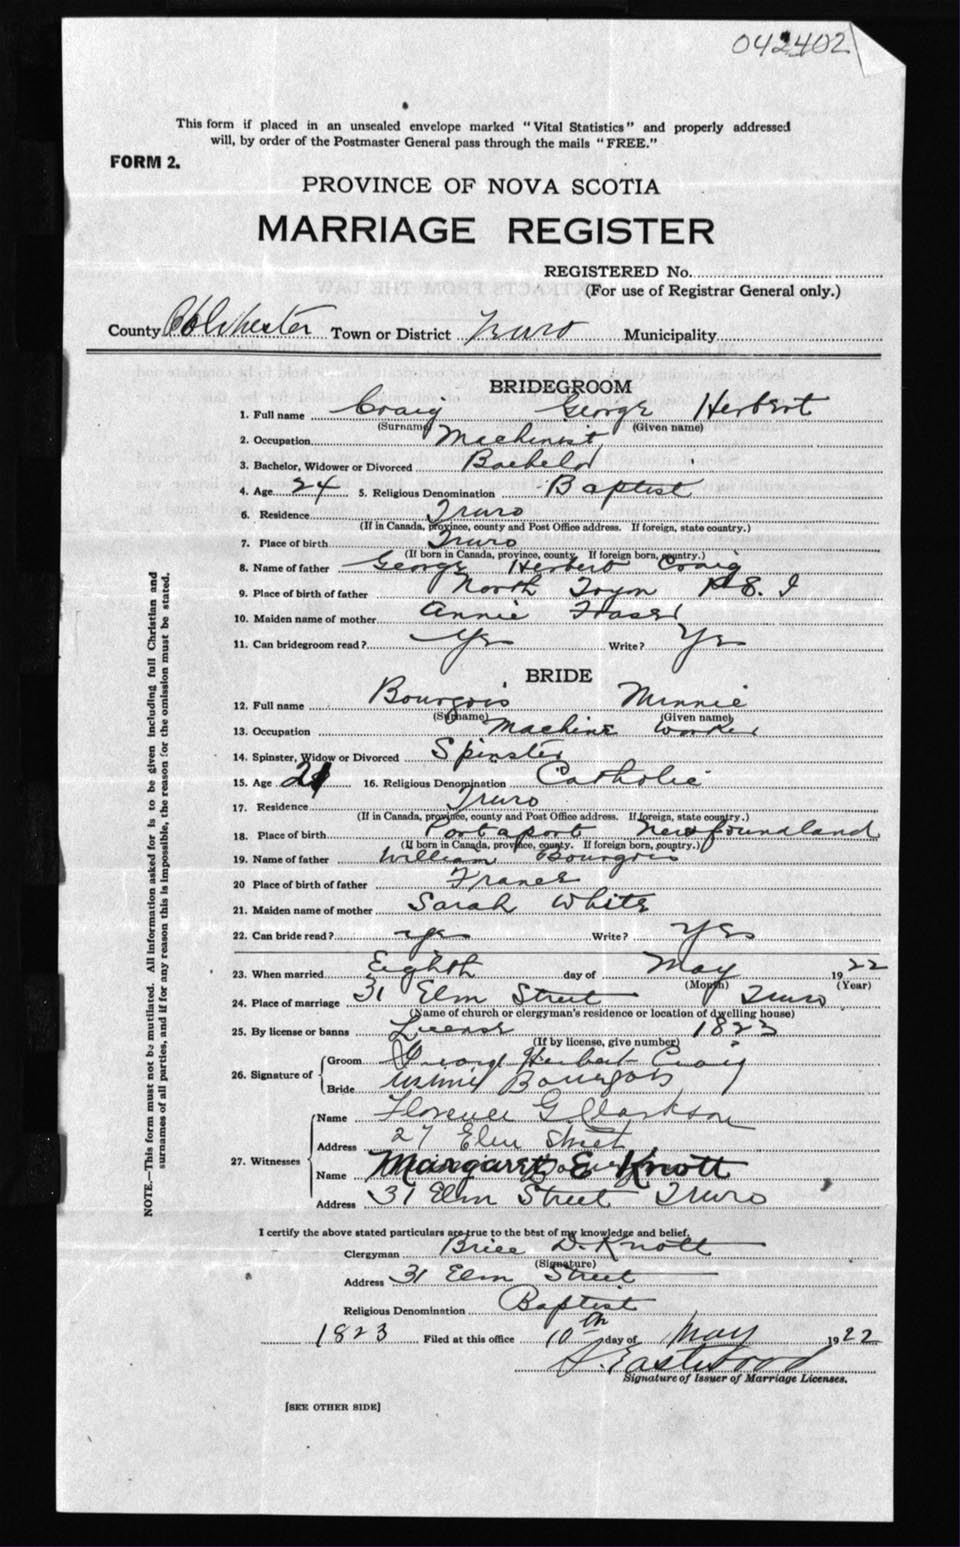 042402
This form if placed in an unsealed envelope marked "Vital Statistics" and properly addressed
will, by order of the Postmaster General pass through the mails "FREE."
FORM 2.
PROVINCE OF NOVA SCOTIA
MARRIAGE REGISTER
REGISTERED No.
(For use of Registrar General only.)
County Colchester Town or District Truro Municipality
BRIDEGROOM
1. Full name Craig George Herbert
(Surname) (Given name)
2. Occupation Machinist
3. Bachelor, Widower or Divorced Bachelor
4. Age 24 5. Religious Denomination Baptist
6. Residence Truro
(If in Canada, province, county and Post Office address. If foreign, state country.)
7. Place of birth Truro
(If born in Canada, province, county. If foreign born, country.)
8. Name of father George Herbert Craig
9. Place of birth of father North Tryon P.E.I
10. Maiden name of mother Annie Fraser
11. Can bridegroom read? Yes Write? Yes
BRIDE
12. Full name Bourgois Minnie
(Surname) (Given name)
13. Occupation Machine Worker
14. Spinster, Widow or Divorced Spinster
15. Age 21 16. Religious Denomination Catholic
17. Residence Truro
(If in Canada, province, county and Post Office address. If foreign, state country.)
18. Place of birth Portaport Newfoundland
(If born in Canada, province, county. If foreign born, country.)
19. Name of father William Bourgois
20 Place of birth of father France
21. Maiden name of mother Sarah White
22. Can bride read? yes Write? Yes
23. When married Eighth day of May 1922
(Month) (Year)
24. Place of marriage 31 Elm Street Truro
(Name of church or clergyman's residence or location of dwelling house)
25. By license or banns License 1823
(If by license, give number)
26. Signature of Groom George Herbert Craig
Bride Minnie Bourgois
27. Witnesses Name Florence G Clarkson
Address 27 Elm Street
Name Margaret E Knott
Address 31 Elm Street Truro
I certify the above stated particulars are true to the best of my knowledge and belief,
Clergyman Brice D. Knott
(Signature)
Address 31 Elm Street
Religious Denomination Baptist
1823 Filed at this office 10th day of May 1922
A. Eastwood
Signature of Issuer of Marriage Licenses.
[SEE OTHER SIDE]
NOTE.—This form must not be mutilated. All information asked for is to be given including full Christian and
surnames of all parties, and if for any reason this is impossible, the reason for the omission must be stated.